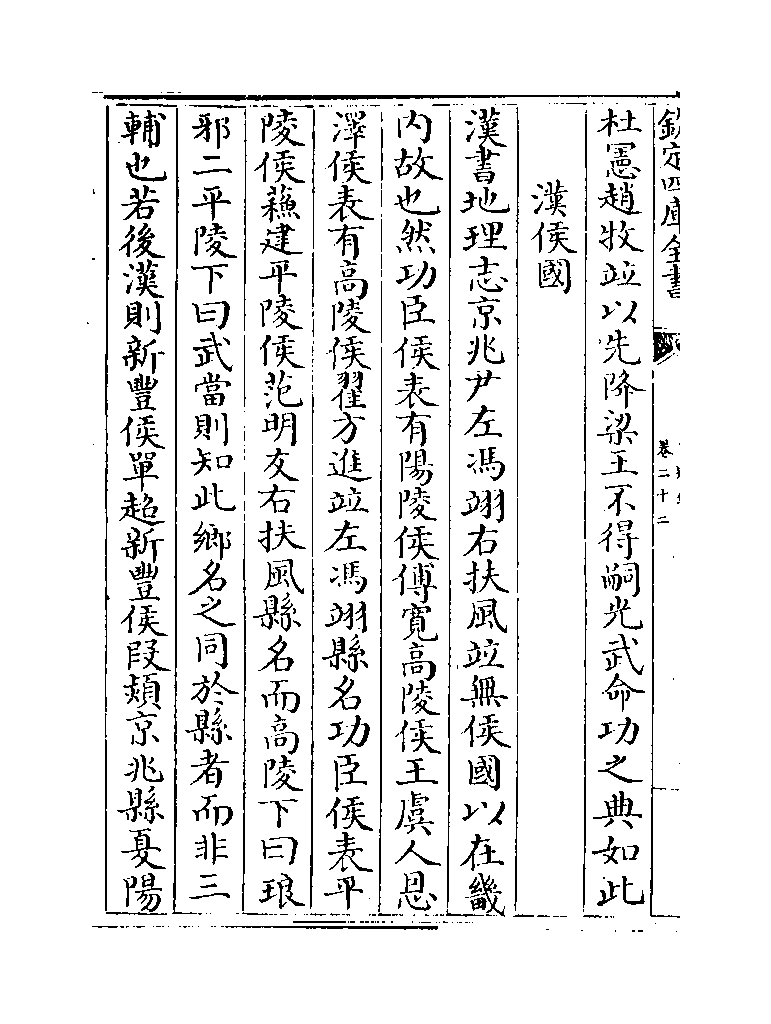 欽定四庫全書
卷二十二
杜憲趙牧竝以先降梁王不得嗣光武命功之典如此
漢侯國
漢書地理志京兆尹左馮翊右扶風竝無侯國以在畿
内故也然功臣侯表有陽陵侯傅寛高陵侯王虞人恩
澤侯表有高陵侯翟方進竝左馮翊縣名功臣侯表平
陵侯蘓建平陵侯范明友右扶風縣名而高陵下曰琅
邪二平陵下曰武當則知此鄉名之同於縣者而非三
輔也若後漢則新豐侯單超新豐侯段熲京兆縣夏陽